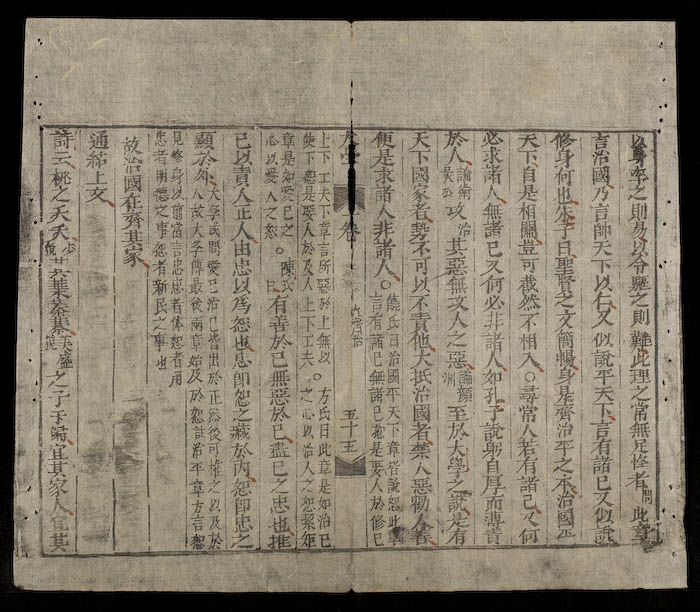 以身率之則易以令驅之則難此理之常無足怪者問此章
言治國乃言帥天下以仁又似說平天下言有諸己又似說
修身何也朱子曰聖賢之文簡暢身是齊治平之本治國平
天下自是相關豈可截然不相入○尋常人若有諸己又何
必求諸人無諸己又何必非諸人如孔子說躬自厚而薄責
於人論衛靈公攻治其惡無攻人之惡論顏淵至於大學之說是有
天下國家者勢不可以不責他大抵治國者禁人惡勸人善
便是求諸人非諸人○
饒氏曰治國平天下章皆說恕此章
言有諸己無諸己恕是要人於修己
大學
卷
五十五
上下工夫下章言所惡於上無以○方氏曰此章是如治己
使下恕是要人於及人上下工夫 之心以治人之恕絜矩
章是如愛己之○陳氏
心以愛人之恕 曰
有善於己無惡於己盡己之忠也推
己以責人正人由忠以為恕也忠即恕之藏於內恕即忠之
顯於外
愛己治己皆出於正然後可推之以及於
人故大學傳最後兩章始及於恕註治平章方言恕
見修身以前當言忠忠者体恕者用
忠者明德之事恕者新民之事也
故治國在齊其家
通結上文
詩云桃之夭夭少好貌其葉蓁蓁美盛貌之子于歸宜其家人宜其